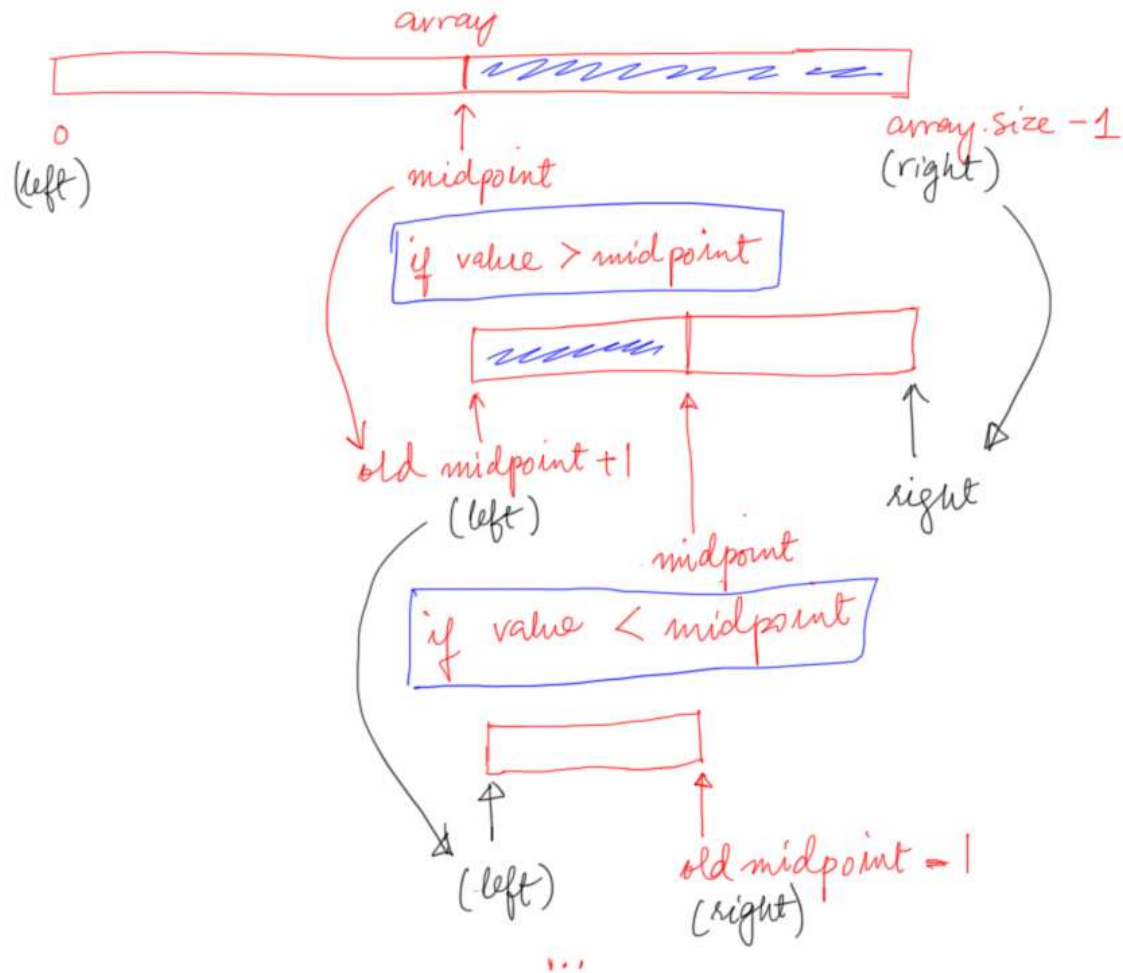 array
0
(left)
array.size - 1
(right)
midpoint
if value > midpoint
old midpoint + 1
(left)
right
midpoint
if value < midpoint
(left)
old midpoint - 1
(right)
...